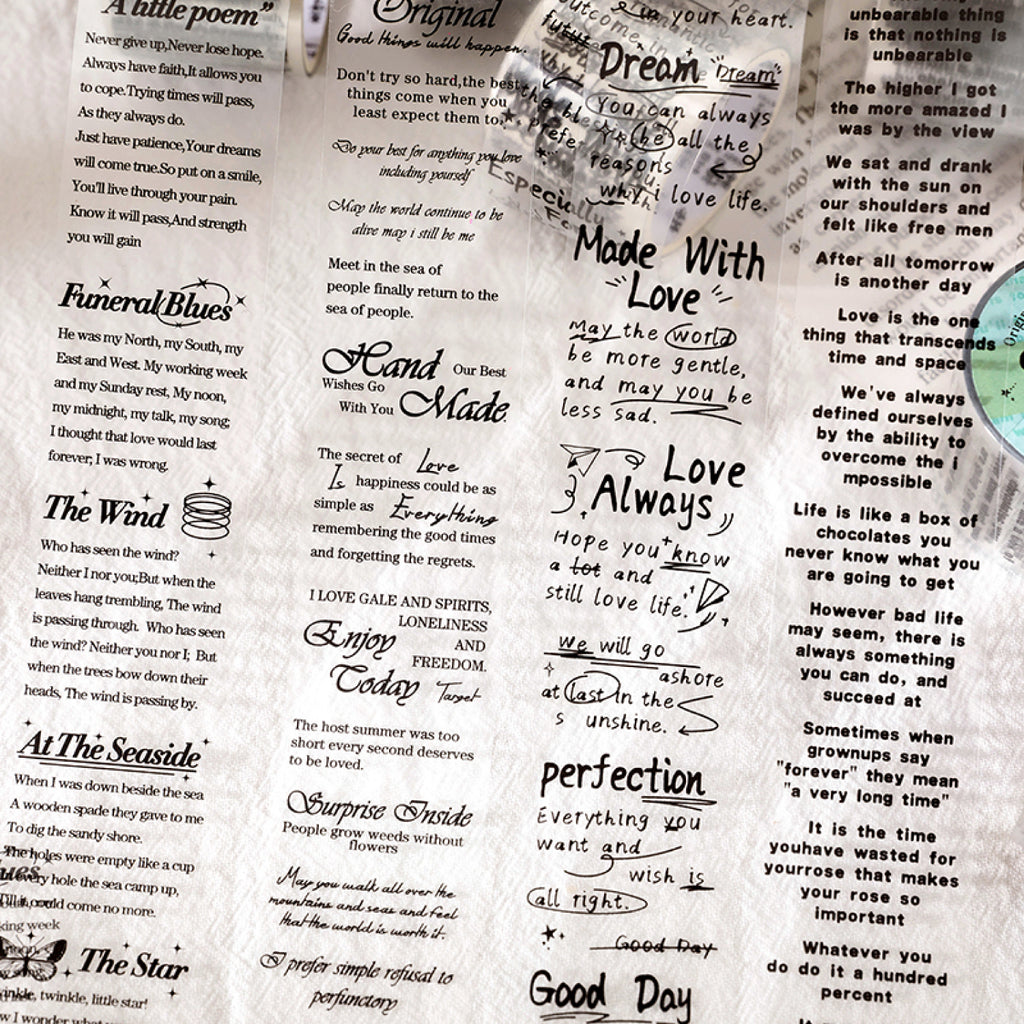 A little poem"
Never give up,Never lose hope.
Always have faith,It allows you
to cope.Trying times will pass,
As they always do.
Just have patience,Your dreams
will come true.So put on a smile,
You'll live through your pain.
Know it will pass,And strength
you will gain
Funeral Blues
He was my North, my South, my
East and West. My working week
and my Sunday rest, My noon,
my midnight, my talk, my song;
I thought that love would last
forever; I was wrong.
The Wind
Who has seen the wind?
Neither I nor you;But when the
leaves hang trembling, The wind
is passing through. Who has seen
the wind? Neither you nor I; But
when the trees bow down their
heads, The wind is passing by.
At The Seaside
When I was down beside the sea
A wooden spade they gave to me
To dig the sandy shore.
The holes were empty like a cup
every hole the sea camp up,
could come no more.
king week
The Star
inkle, twinkle, little star!
Original
Good things will happen.
Don't try so hard,the best
things come when you
least expect them to.
Do your best for anything you love
including yourself
May the world continue to be
alive may i still be me
Meet in the sea of
people finally return to the
sea of people.
Hand Our Best
Wishes Go
With You Made
The secret of Love
Is happiness could be as
simple as Everything
remembering the good times
and forgetting the regrets.
I LOVE GALE AND SPIRITS,
LONELINESS
Enjoy AND
FREEDOM.
Today Target
The host summer was too
short every second deserves
to be loved.
Surprise Inside
People grow weeds without
flowers
May you walk all over the
mountains and seas and feel
that the world is worth it.
I prefer simple refusal to
perfunctory
in your heart.
Dream "Dream"
You can always
be all the
reasons
why i love life.
Especially
Made With
"Love"
May the world
be more gentle,
and may you be
less sad.
Love
Always
Hope you know
a lot and
still love life.
We will go
ashore
at last in the
s unshine.
perfection
Everything you
want and
wish is
all right.
Good Day
Good Day
unbearable thing
is that nothing is
unbearable
The higher I got
the more amazed I
was by the view
We sat and drank
with the sun on
our shoulders and
felt like free men
After all tomorrow
is another day
Love is the one
thing that transcends
time and space
We've always
defined ourselves
by the ability to
overcome the i
mpossible
Life is like a box of
chocolates you
never know what you
are going to get
However bad life
may seem, there is
always something
you can do, and
succeed at
Sometimes when
grownups say
"forever" they mean
"a very long time"
It is the time
youhave wasted for
yourrose that makes
your rose so
important
Whatever you
do do it a hundred
percent